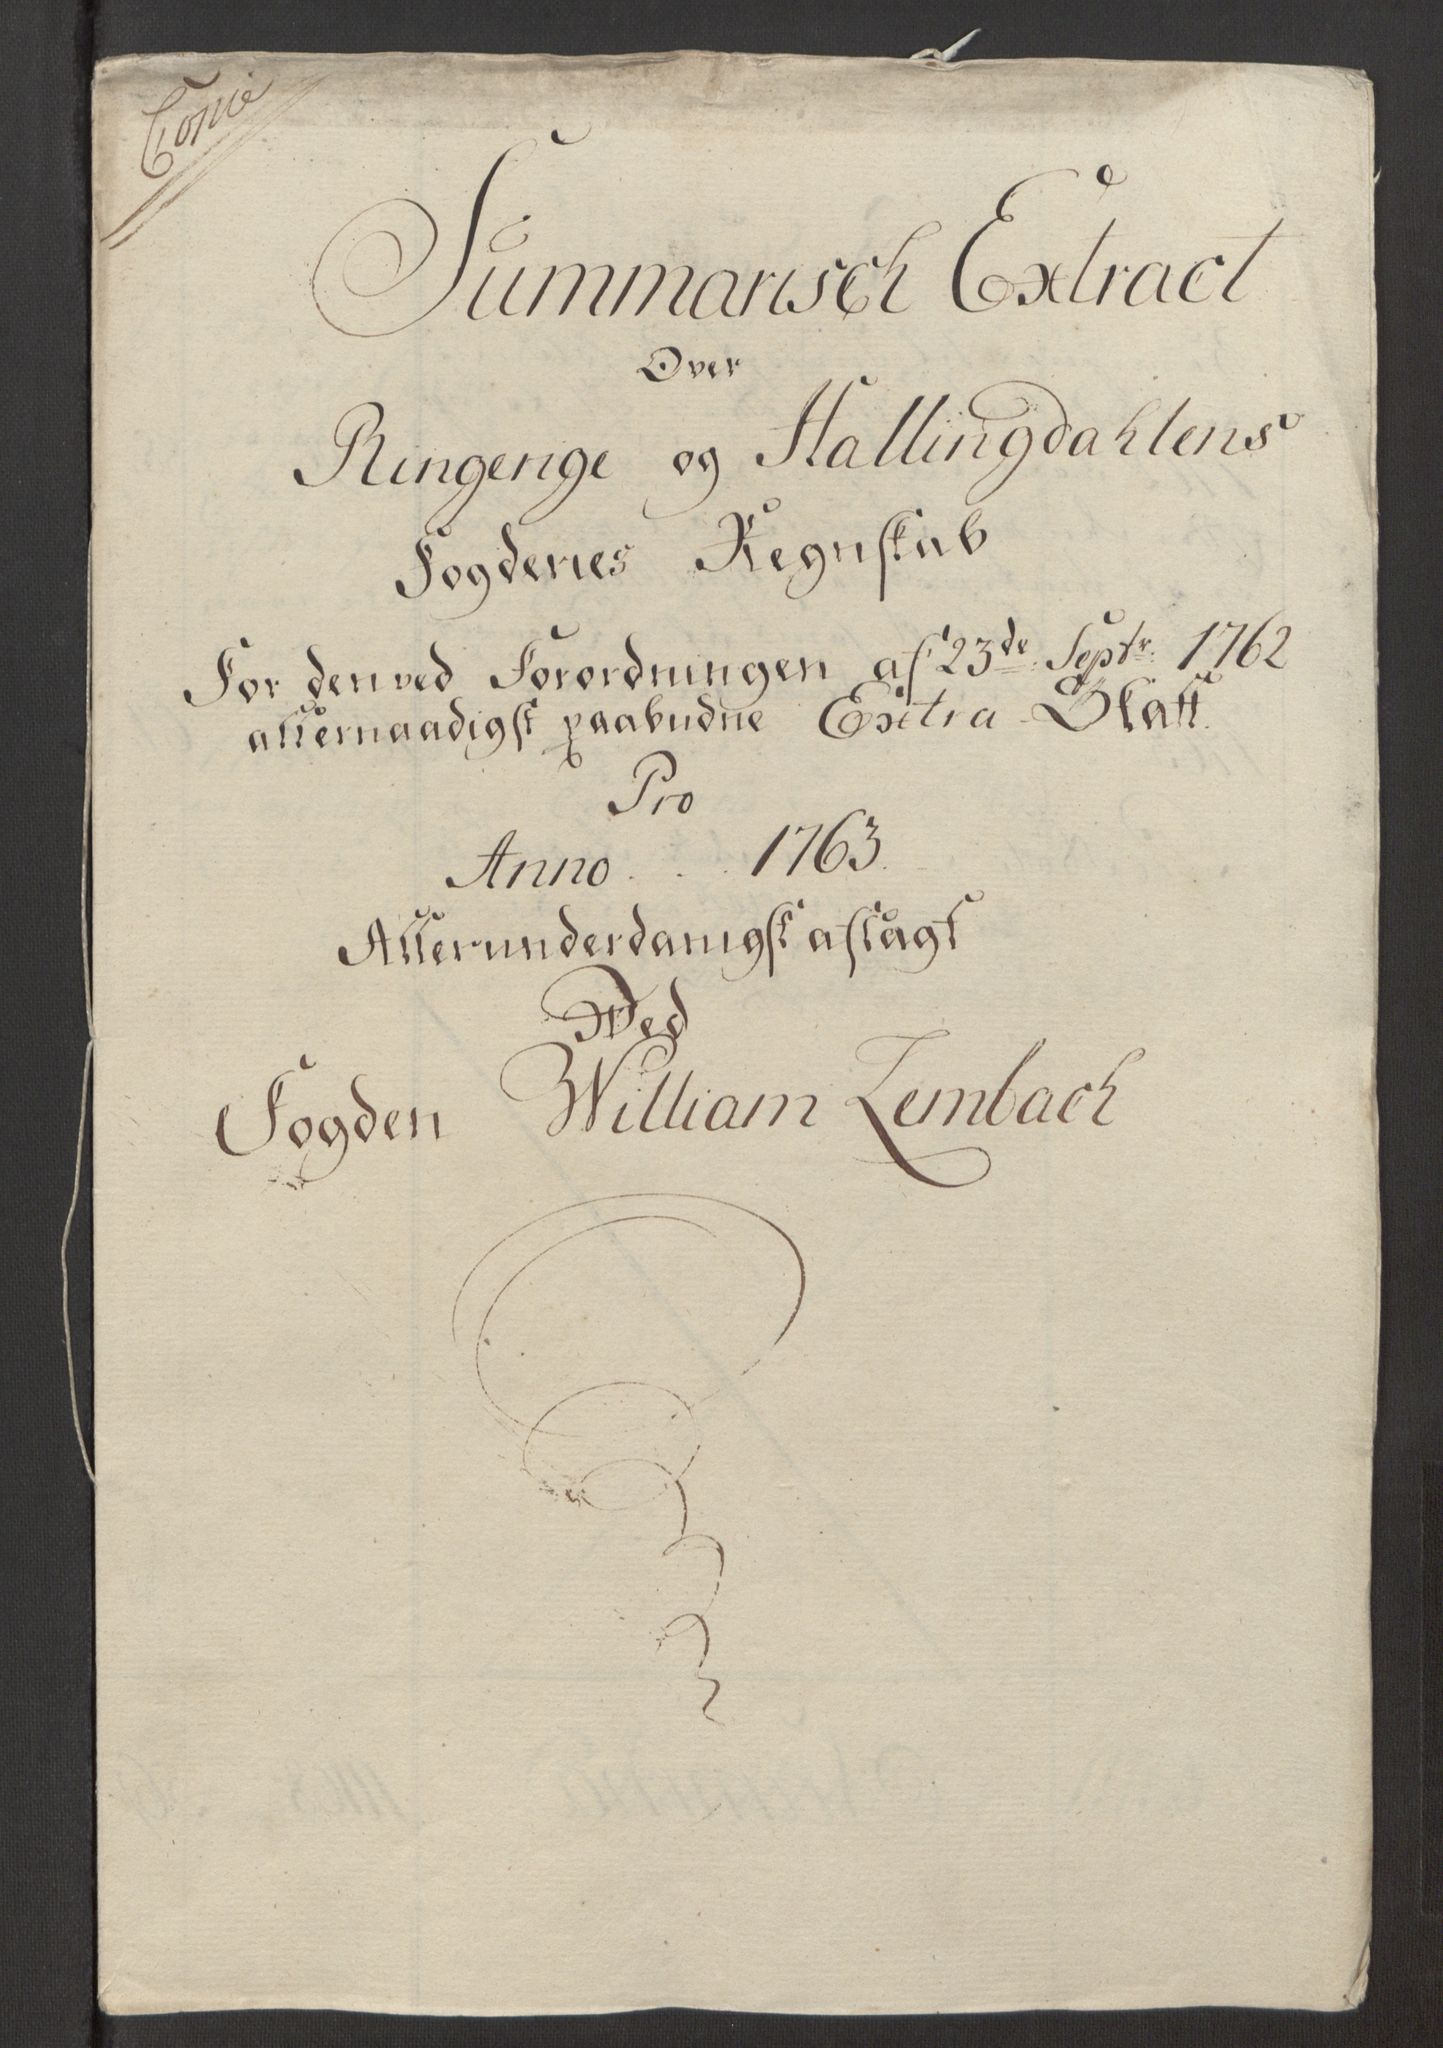 Copie
Summarisch Extract
Over
Ringerige og Hallingdahlens
Fogderies Regnskab
For den ved Forordningen af 23de Septr. 1762
allernaadigst paabudne Extra-Skatt.
Pro
Anno . . . 1763.
Allerunderdanigst aflagt
Ved
Fogden William Lembach